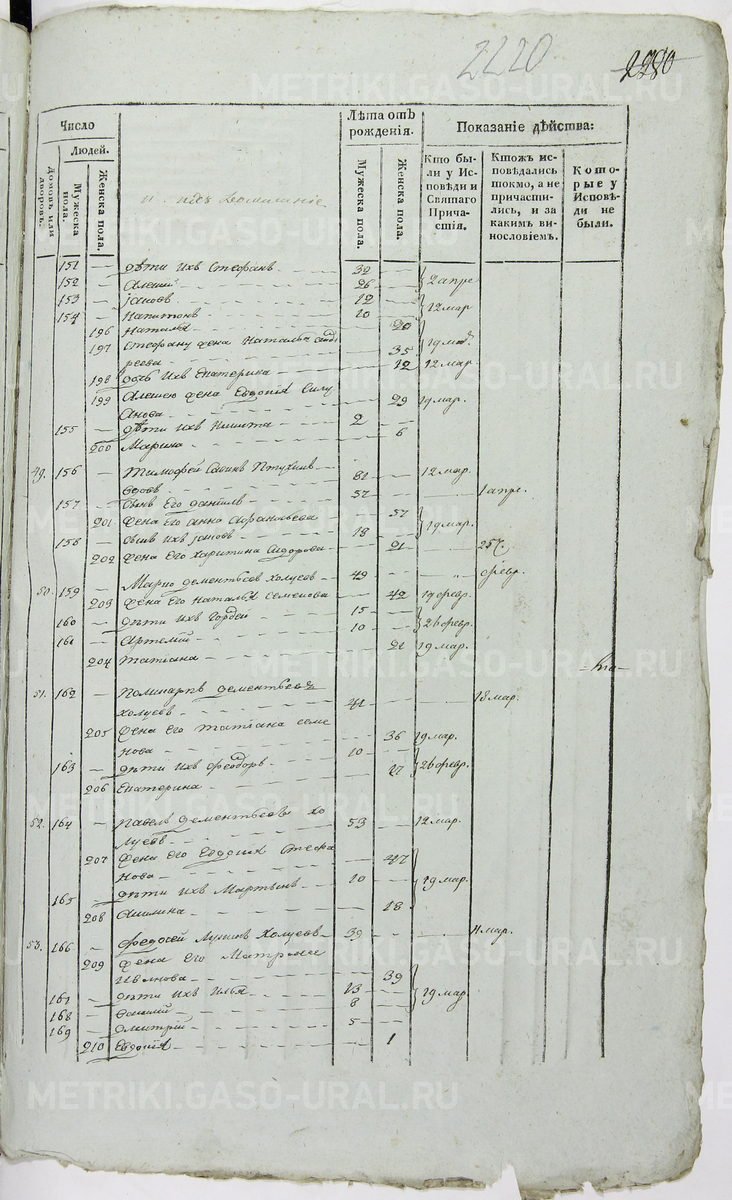 2220
2280
Число
Людей.
Домовъ, или дворовъ.
Мужеска пола.
Женска пола.
и ихъ домашніе
Лѣта отъ рожденія.
Мужеска пола.
Женска пола.
Показаніе дѣйства:
Кто были у Исповѣди и Святаго Причастія.
Ктожъ исповѣдались токмо, а не причастились, и за какимъ винословіемъ.
Которые у Исповѣди не были.
151 — дѣти ихъ Стефанъ 32
152 — Алексей 26 2 апре
153 — Іаковъ 12
154 — Капитонъ 10 12 мар
196 Наталья 20
197 Стефану жена Наталья Анд 19 мар.
реева 35
198 дочь ихъ Екатерина 12 12 мар
199 Алексею жена Евдокія Силу 29 19 мар.
анова
155 — дѣти ихъ Никита 2
200 Марина 6
49. 156 — Тимофей Савинъ 81 12 мар.
157 — сынъ Его Данилъ 57 1 апре.
201 жена Его Анна Афанасьева 57
158 — сынъ ихъ Іаковъ 18 19 мар.
202 жена Его Харитина Сидорова 21 25
50. 159 — Марко Дементьевъ Холуевъ 49 февр.
203 жена Его Наталья Семенова 42 19 февр.
160 — дѣти ихъ Гордей 15
161 — Артемій 10 26 февр.
204 Татіана 21 19 мар.
51. 162 — Поликарпъ Дементьевъ 18 мар.
Холуевъ 41
205 жена Его Татіана Семе
нова 36 19 мар.
163 — дѣти ихъ Феодоръ 10
206 Екатерина 17 26 февр.
52. 164 — Павелъ Дементьевъ Хо 53 12 мар.
луевъ
207 жена Его Евдокія Стефа 47
нова
165 — дѣти ихъ Мартынъ 10 19 мар.
208 Акилина 18
53. 166 — Федосей Лукинъ Холуевъ 39 11 мар.
209 жена Его Матрона
Иванова 39
167 — дѣти ихъ Илья 13
168 — 8 19 мар.
169 — Дмитрій 5
210 Евдокія 1
METRIKI.GASO-URAL.RU
METRIKI.GASO-URAL.RU
METRIKI.GASO-URAL.RU
METRIKI.GASO-URAL.RU
METRIKI.GASO-URAL.RU